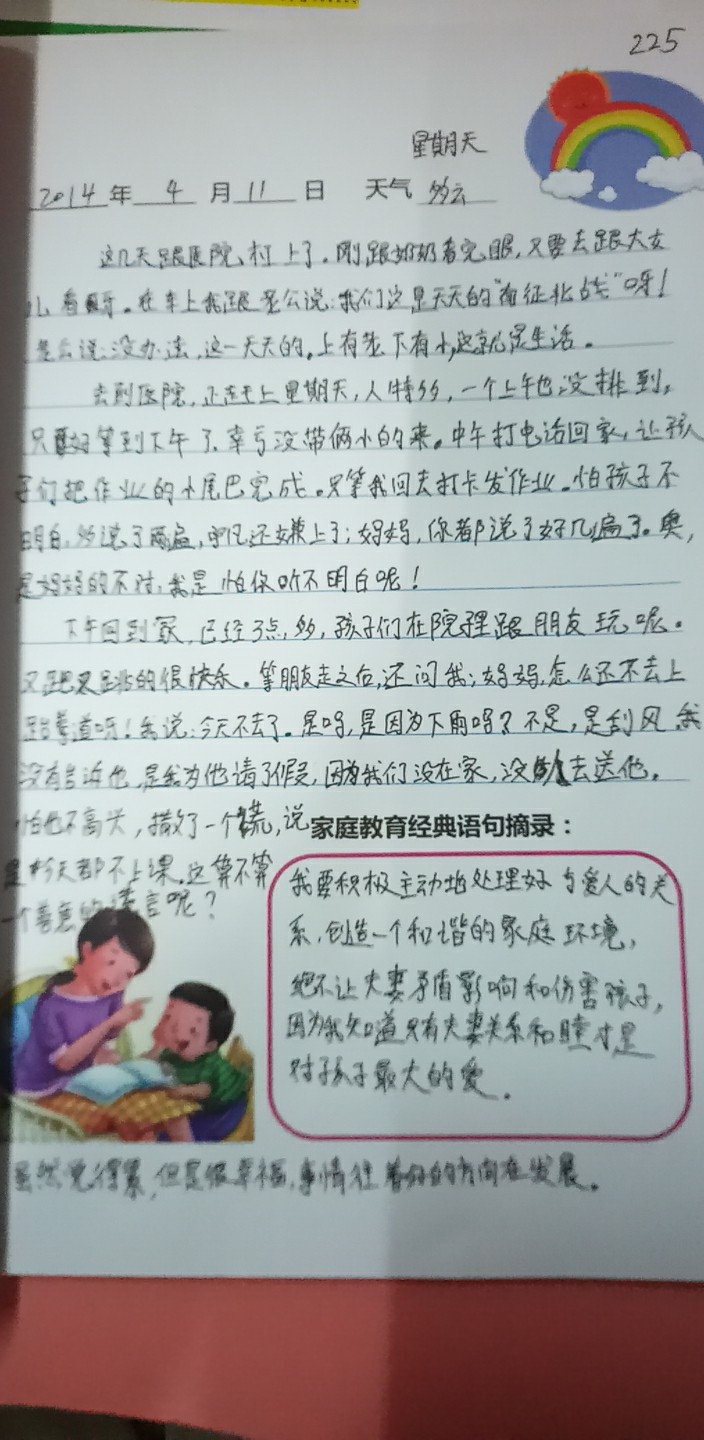 225
星期天
2014年 4 月 11 日 天气 多云
这几天跟医院杠上了。刚跟奶奶看完眼,又要去跟大女
儿看牙。在车上我跟老公说:我们这是天天的"南征北战"呀!
老公说:没办法,这一天天的,上有老下有小,这就是生活。
去到医院,正赶上星期天,人特多,一个上午也没排到,
只好等到下午了。幸亏没带俩小的来。中午打电话回家,让孩
子们把作业的小尾巴完成。只等我回去打卡发作业。怕孩子不
明白,多说了两遍,还嫌上了;妈妈,你都说了好几遍了。奥,
是妈妈的不对,我是怕你听不明白呢!
下午回到家,已经3点多,孩子们在院里跟朋友玩呢。
又跑又跳的很快乐。等朋友走之后,还问我;妈妈,怎么还不去上
跆拳道呀!我说:今天不去了。是吗,是因为下雨吗?不是,是刮风,我
没有告诉他,是我为他请了假,因为我们没在家,没人去送他。
怕他不高兴,撒了一个谎,说
是今天都不上课。这算不算
一个善意的谎言呢?
家庭教育经典语句摘录:
我要积极主动地处理好与爱人的关
系,创造一个和谐的家庭环境,
绝不让夫妻矛盾影响和伤害孩子,
因为我知道只有夫妻关系和睦才是
对孩子最大的爱。
虽然觉得累,但是很幸福,事情往着好的方向在发展。